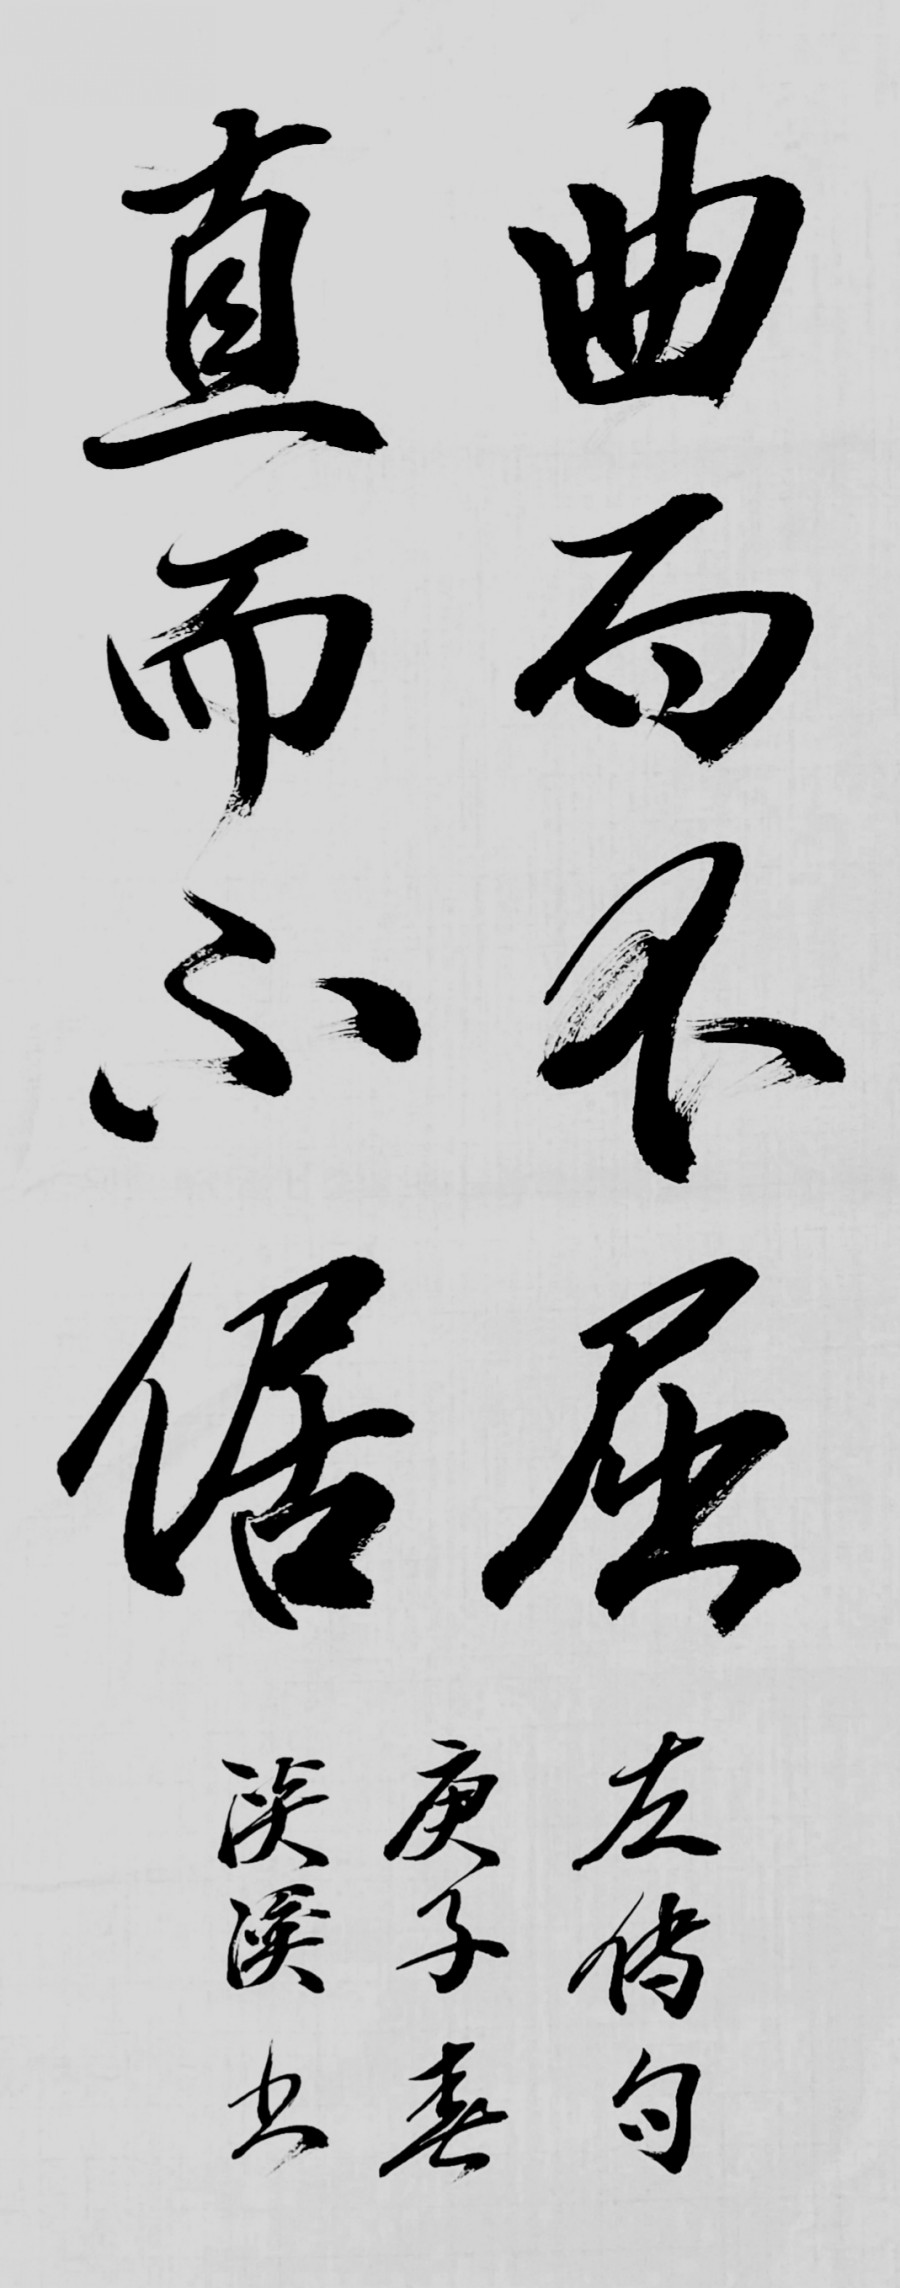 曲而不屈
直而不倨
左传句
庚子春
溪书